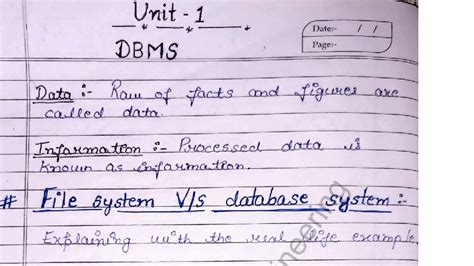 Unit - 1
Date:- / /
Page:-
DBMS
Data :- Raw of facts and figures are
called data.
Information :- Processed data is
known as information.
# File system V/s database system :-
Explaining with the real life example